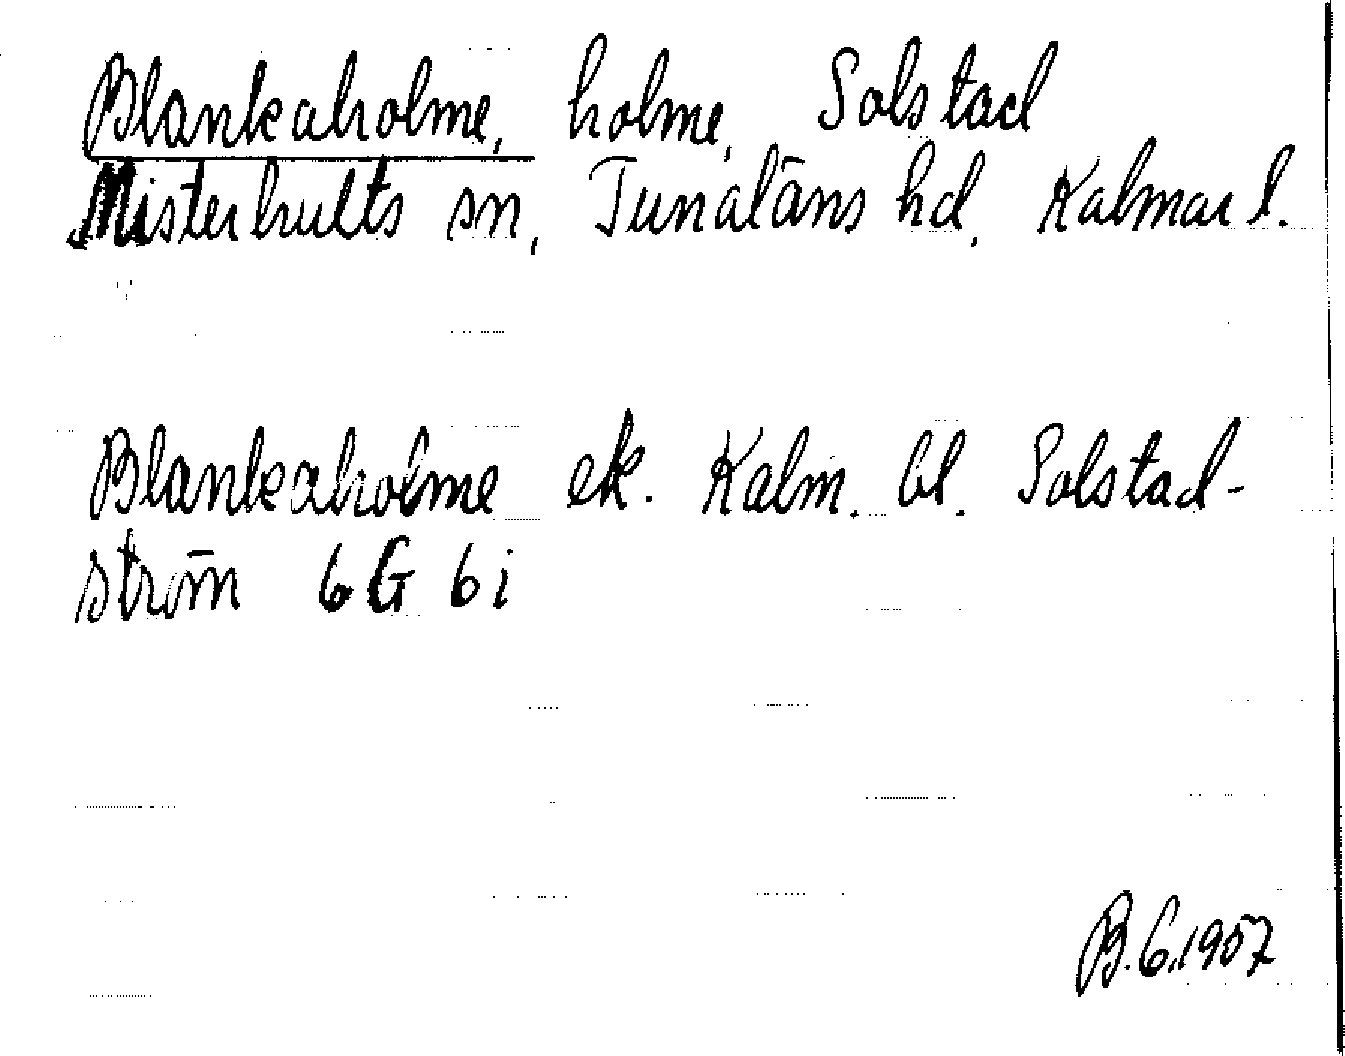 Blankaholme, holme, Solstad
Misterhults sn, Tunaläns hd, Kalmar l.
Blankaholme ek. Kalm. bl. Solstad-
ström 6G 6i
B.G.1957